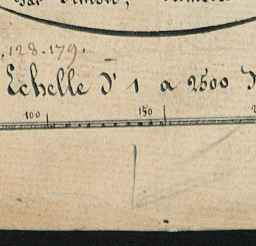 .128.179.
Echelle d' 1 a 2500
100 150